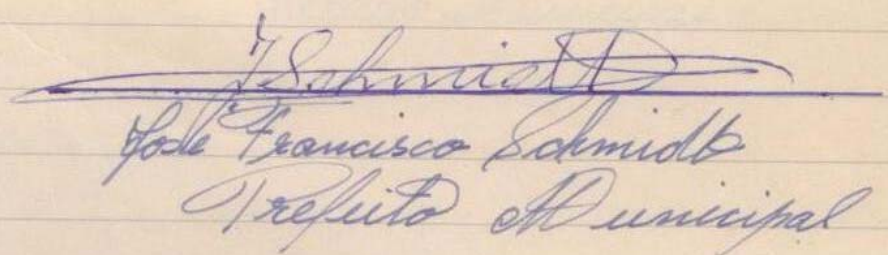 JSchmidt
José Francisco Schmidt
Prefeito Municipal